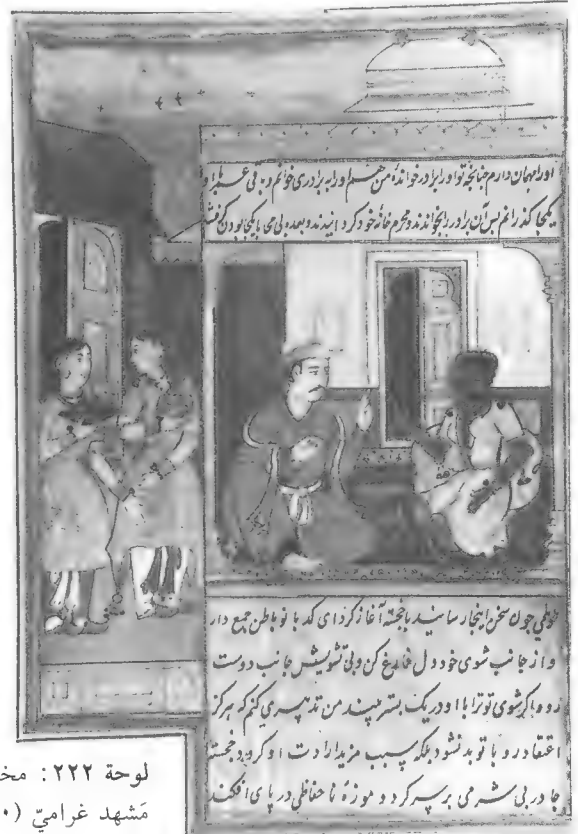 اورا مهمان دارم چنانچه تو اورا برادر خوانده من هم اورا به برادری خوانم دقتی
یکجا کذر بس آن برادر را بخواندند و محرم خانهٔ خود کردانیدند و بعد بی محابا یکجا بودن
طوطی چون سخن اینجا رسانید با خجسته آغاز کرد ای کدبانو باطن جمع دار
و از جانب شوی خود دل فارغ کن و بی تشویش جانب دوست
رو و اکر شوی تو ترا با او در یک بستر بیند من تدبیری کنم که هرکز
اعتقاد او با تو بد نشود بلکه سبب مزید ارادت او کردد خجسته
چادر بی شرمی بر سر کرد و موزهٔ ناحفاظی در پای افکند
لوحة ٢٢٢: مخ
مَشهد غراميّ (٠